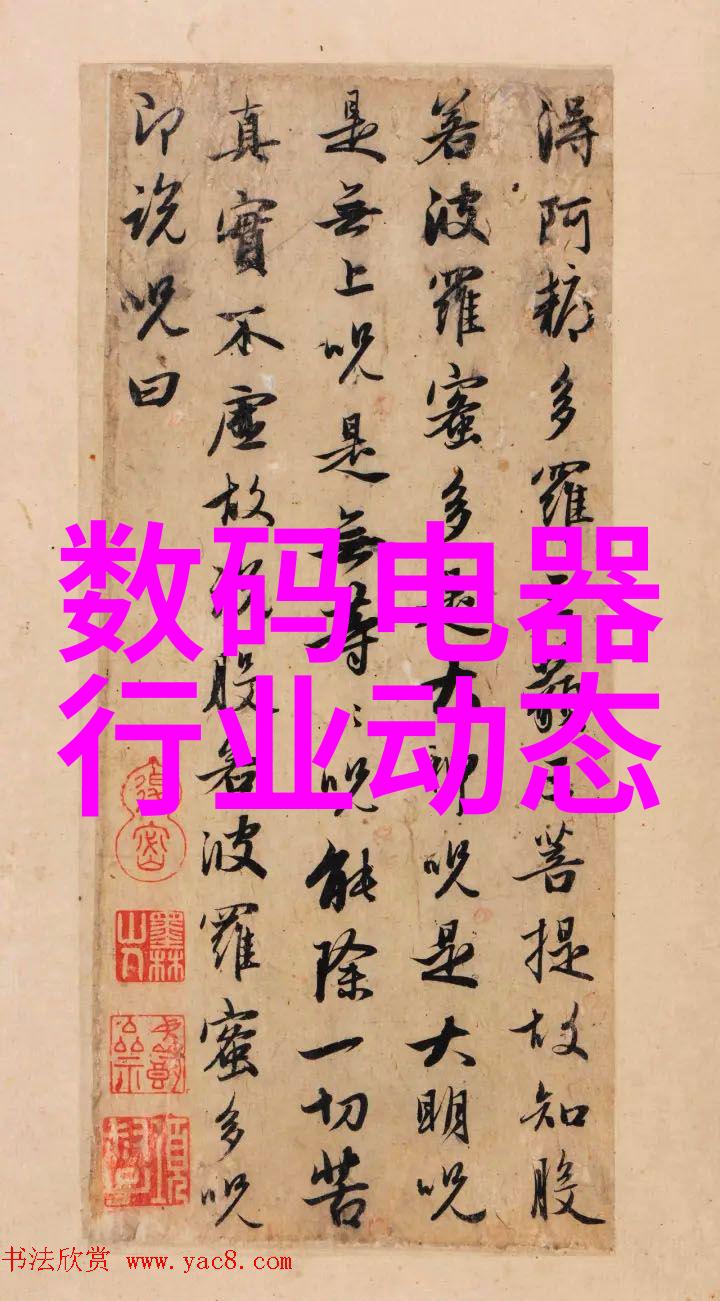 得阿耨多羅三藐三菩提故知般
若波羅蜜多是大神呪是大明呪
是無上呪是無等〻呪能除一切苦
真實不虛故說般若波羅蜜多呪
即說呪曰
数码电器
行业动态
墨林山人
书法欣赏 www.yac8.com